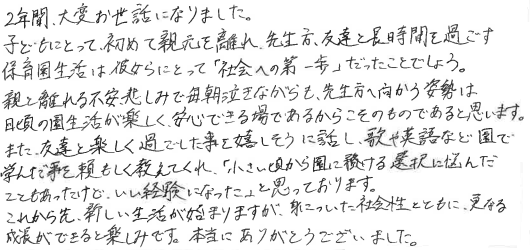 2年間、大変お世話になりました。
子どもにとって、初めて親元を離れ、先生方、友達と長時間を過ごす
保育園生活は彼女らにとって「社会への第一歩」だったことでしょう。
親と離れる不安、悲しみで毎朝泣きながらも、先生方へ向かう姿勢は
日頃の園生活が楽しく、安心できる場であるからこそのものであると思います。
また、友達と楽しく過ごした事を嬉しそうに話し、歌や英語など園で
学んだ事を頼もしく教えてくれ、「小さい頃から園に預ける選択に悩んだ
こともあったけど、いい経験になったな」と思っております。
これから先、新しい生活が始まりますが、身についた社会性とともに、更なる
成長ができると楽しみです。本当にありがとうございました。